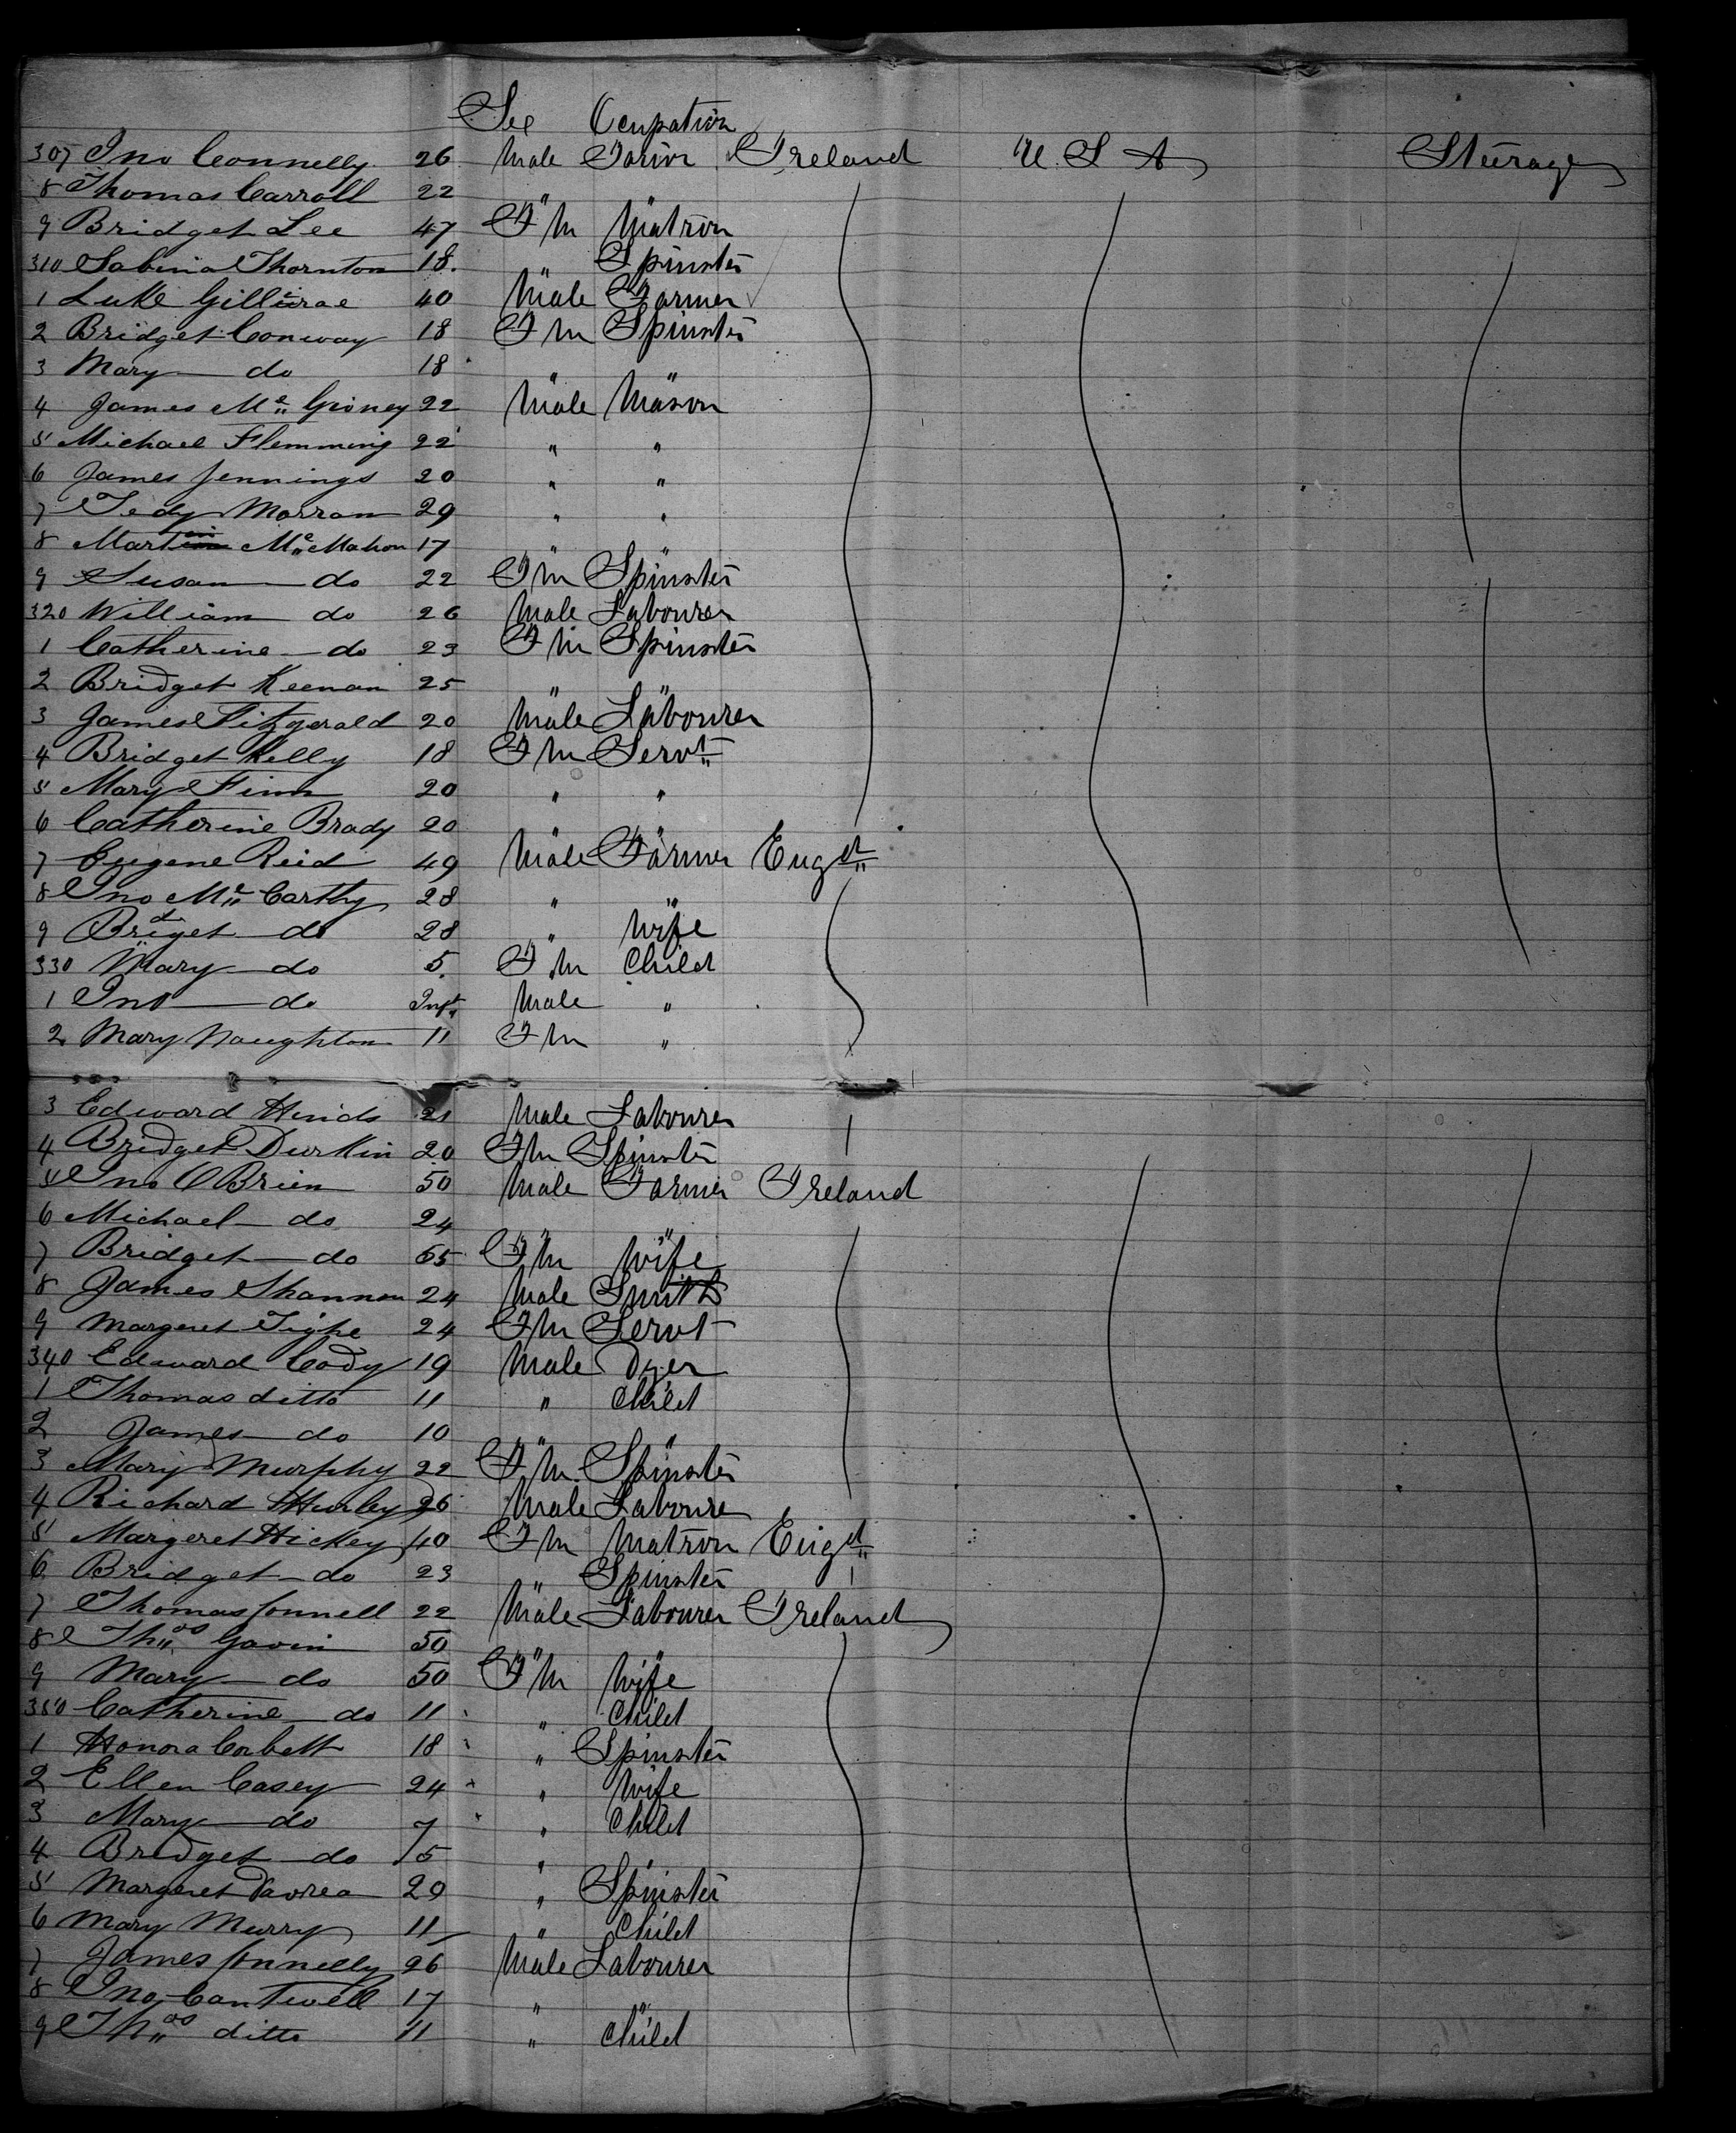 Sex Ocupation
307 Jno Connelly 26 Male Farmr Ireland U. S. A Steerage
8 Thomas Carroll 22 " "
9 Bridget Lee 47 Fm Matron
310 Sabina Thornton 18. " Spinster
1 Luke 40 Male Farmer
2 Bridget Conway 18 Fm Spinster
3 Mary do 18 " "
4 James Mc 22 Male Mason
5 Michael Flemming 22 " "
6 James Jennings 20 " "
7 Tedy Morran 29 " "
8 Martin McMahon 17 " "
9 Susan do 22 Fm Spinster
320 William do 26 Male Labourer
1 Catherine do 23 Fm Spinster
2 Bridget Keenan 25 " "
3 James Fitzgerald 20 Male Labourer
4 Bridget Kelly 18 Fm Servt
5 Mary Finn 20 " "
6 Catherine Brady 20 " "
7 Eugene Reid 49 Male Farmer Engd
8 Jno McCarthy 28 " "
9 Bridget do 28 " Wife
330 Mary do 5. Fm Child
1 Jno do Inft Male "
2 Mary Naughton 11 Fm "
3 Edward Hinds 21 Male Labourer
4 Bridget Durkin 20 Fm Spinster
5 Jno OBrien 50 Male Farmer Ireland
6 Michael do 24 " "
7 Bridget do 65 Fm Wife
8 James Shannon 24 Male Smith
9 Margeret Tighe 24 Fm Servt
340 Edward Cody 19 Male Dyer
1 Thomas ditto 11 " Child
2 James do 10 " "
3 Mary Murphy 22 Fm Spinster
4 Richard Hurley 26 Male Laboure
5 Margeret Hickey 40 Fm Matron Engd
6 Bridget do 23 " Spinster
7 Thomas Connell 22 Male Labourer Ireland
8 Thos Gavin 50 " "
9 Mary do 50 Fm Wife
350 Catherine do 11 " Child
1 Honora Corbett 18 " Spinster
2 Ellen Casey 24 " Wife
3 Mary do 7 " Child
4 Bridget do 5 " "
5 Margeret Davrea 29 " Spinster
6 Mary Murry 11 " Child
7 James Connelly 26 Male Labourer
8 Jno Cantwell 17 " "
9 Thos ditto 11 " Child